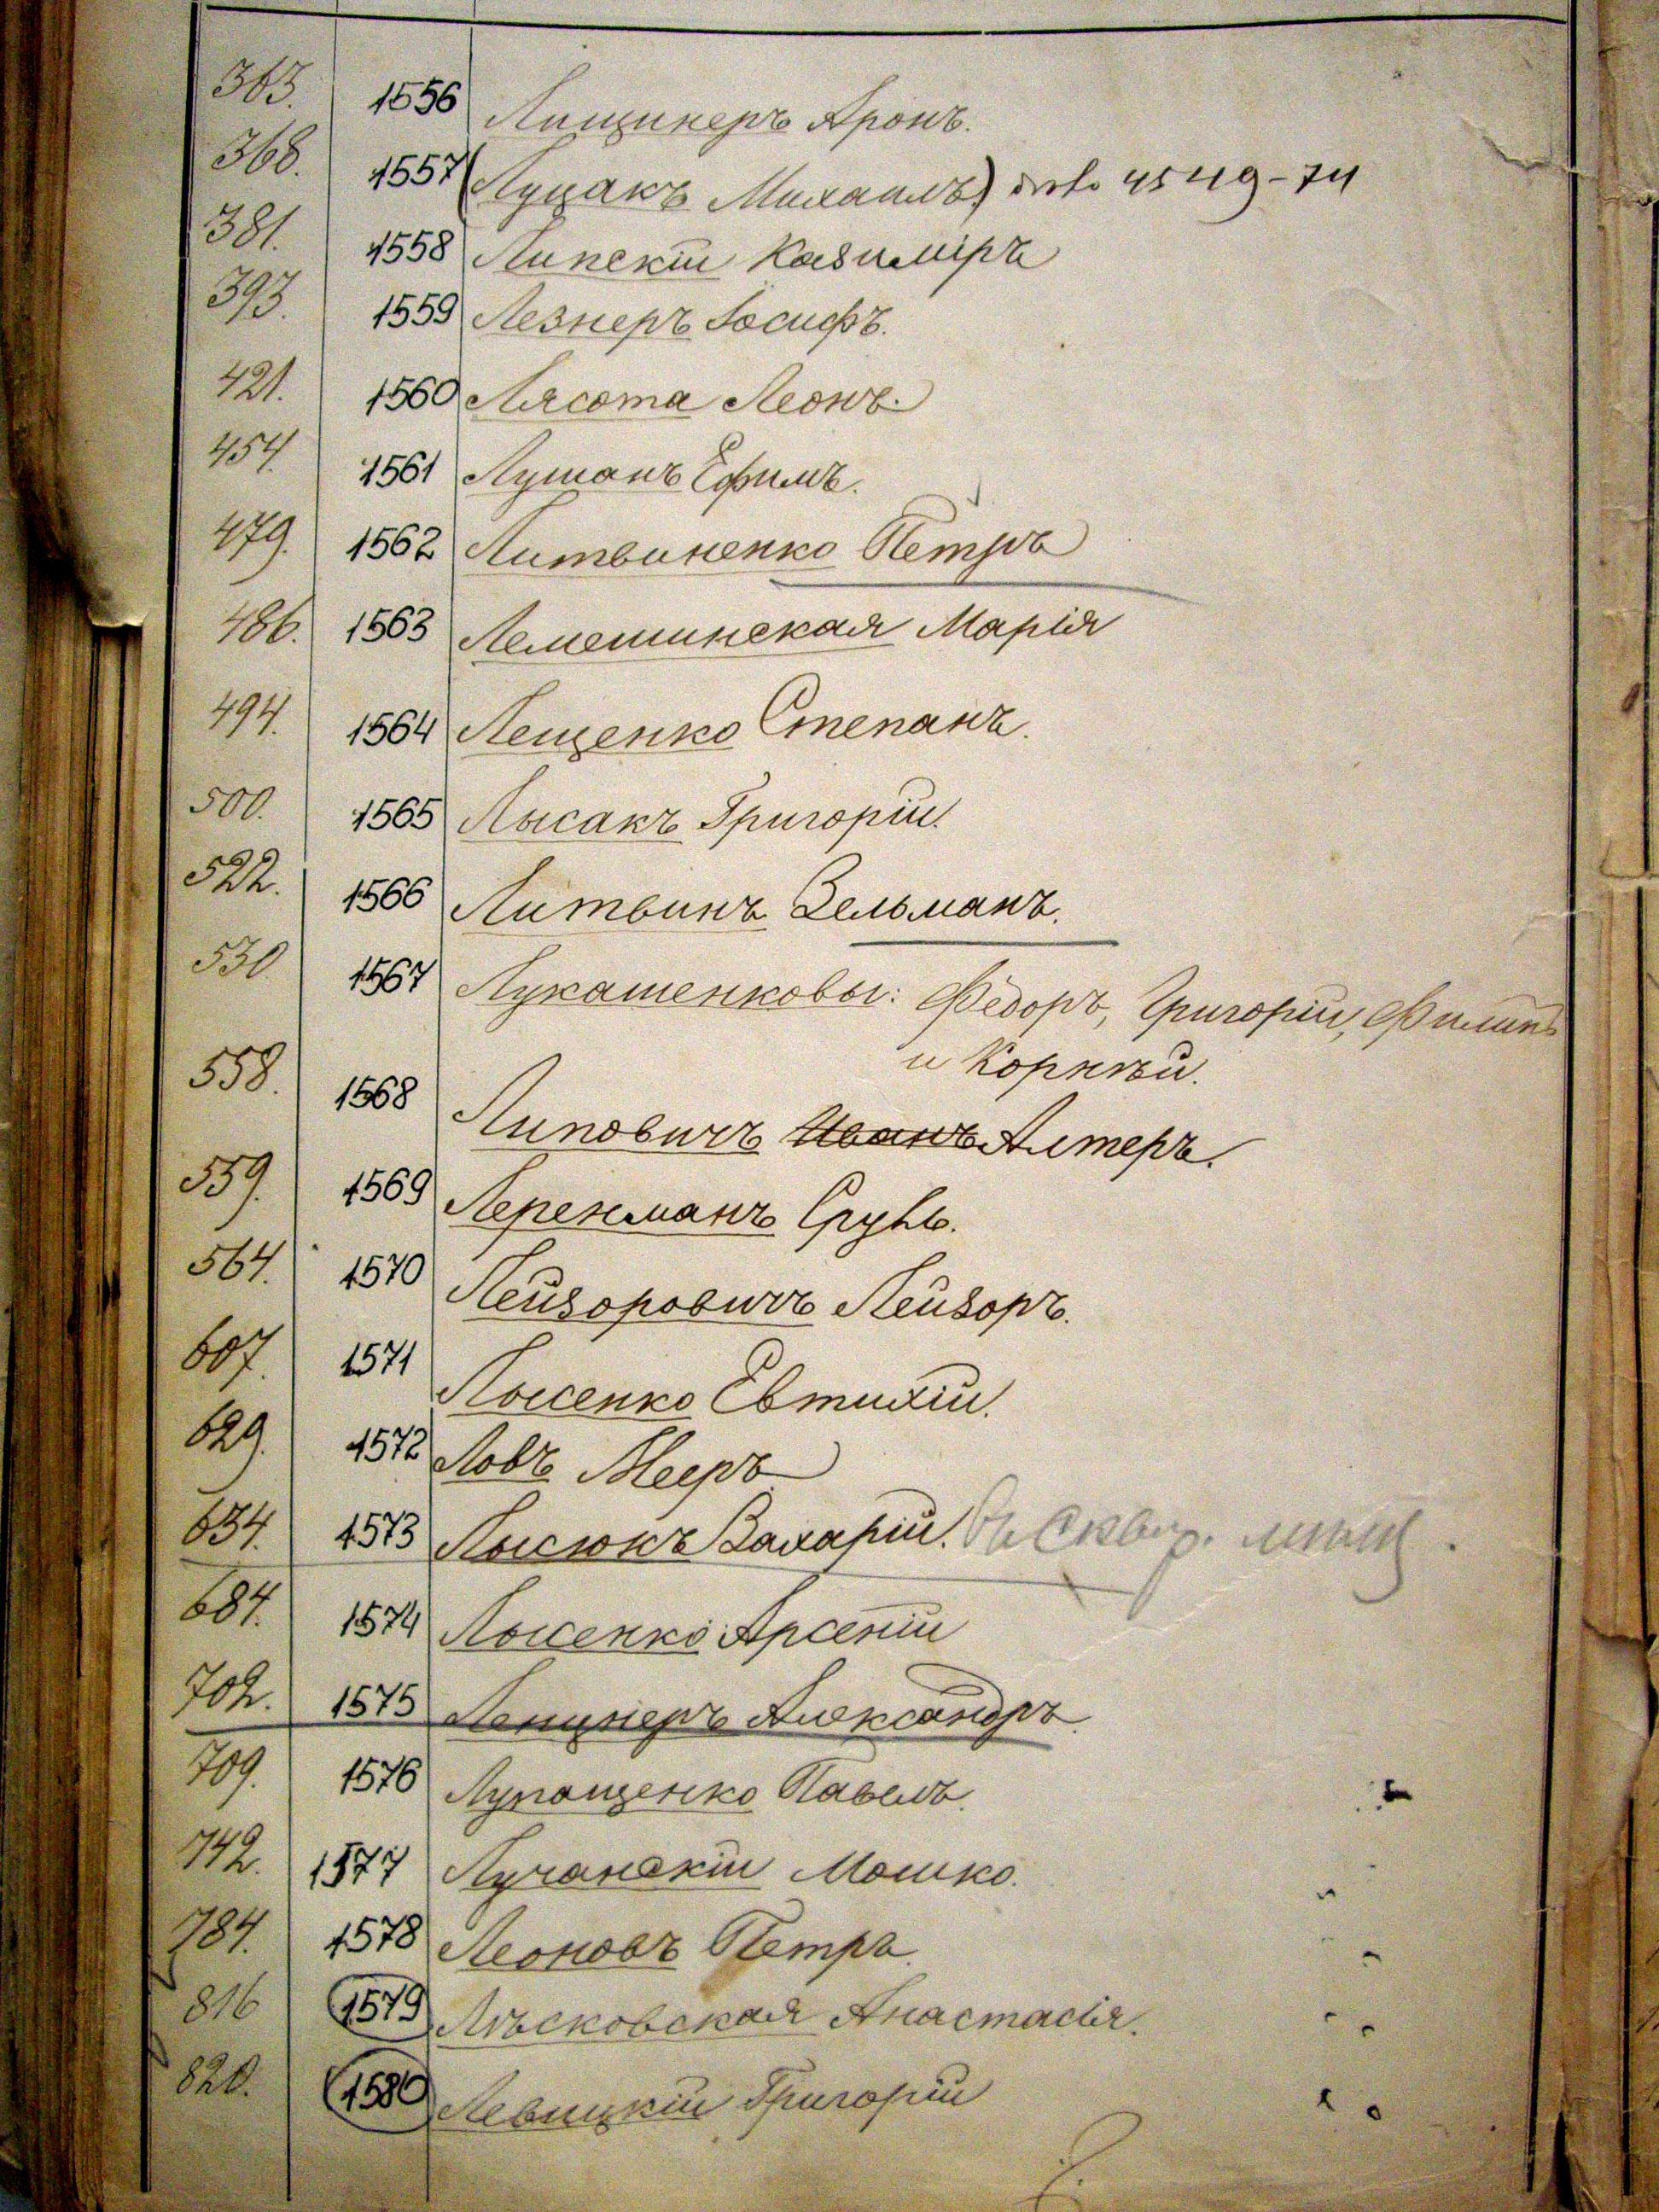 363. 1556 Лищинеръ Аронъ.
368. 1557 (Луцакъ Михаилъ) 4549-74
381. 1558 Липскій Казиміръ
393. 1559 Лезнеръ Іосифъ.
421. 1560 Лясота Леонъ.
454. 1561 Лушанъ Ефимъ.
479. 1562 Литвиненко Петръ
486. 1563 Лемешинская Марія
494. 1564 Лещенко Степанъ.
500. 1565 Лысакъ Григорій.
522. 1566 Литвинъ Зельманъ.
530 1567 Лукашенковы: Федоръ, Григорій, Филипъ
и Корнѣй.
558. 1568 Липовичъ Иванъ Алтеръ.
559. 1569 Леренманъ Сруль.
564. 1570 Лейзоровичъ Лейзоръ.
607. 1571 Лысенко Евтихій.
629. 1572 Ловъ Мееръ
634. 1573 Лысюкъ Захарій.
684. 1574 Лысенко Арсеній
702. 1575 Александръ.
709. 1576 Лупащенко Павелъ.
742. 1577 Лучанскій Мошко.
784. 1578 Леоновъ Петръ.
816 1579 Лѣсковская Анастасія.
820. 1580 Левицкій Григорій